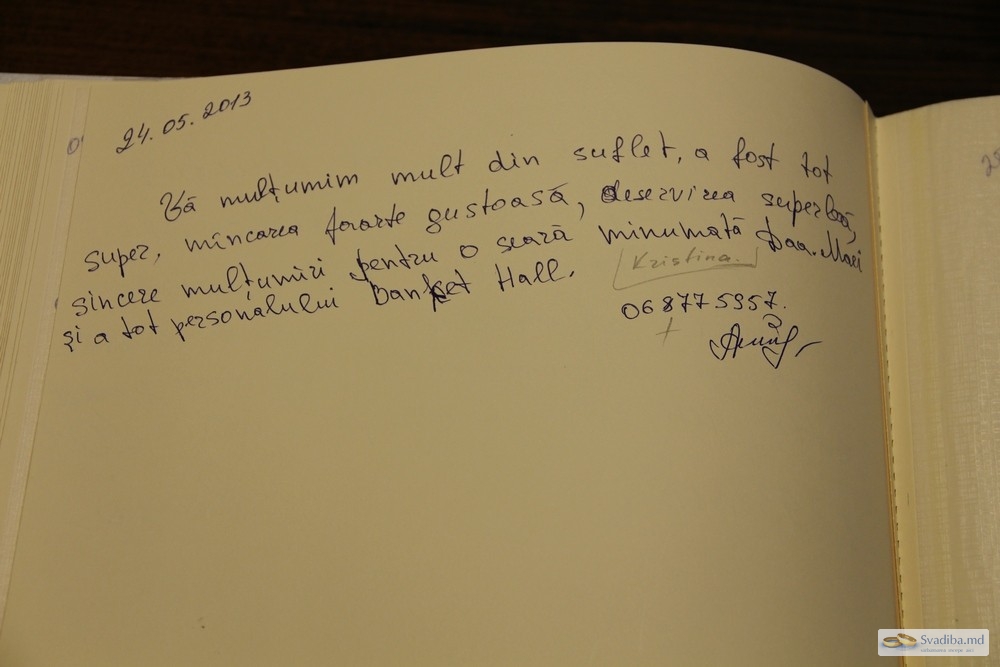 24.05.2013
Vă mulțumim mult din suflet, a fost tot
super, mîncarea foarte gustoasă, deservirea superbă,
sincere mulțumiri pentru o seară minumată Daa. Mari
și a tot personalului Banket Hall.
Kristina.
068775957.
+
Svadiba.md